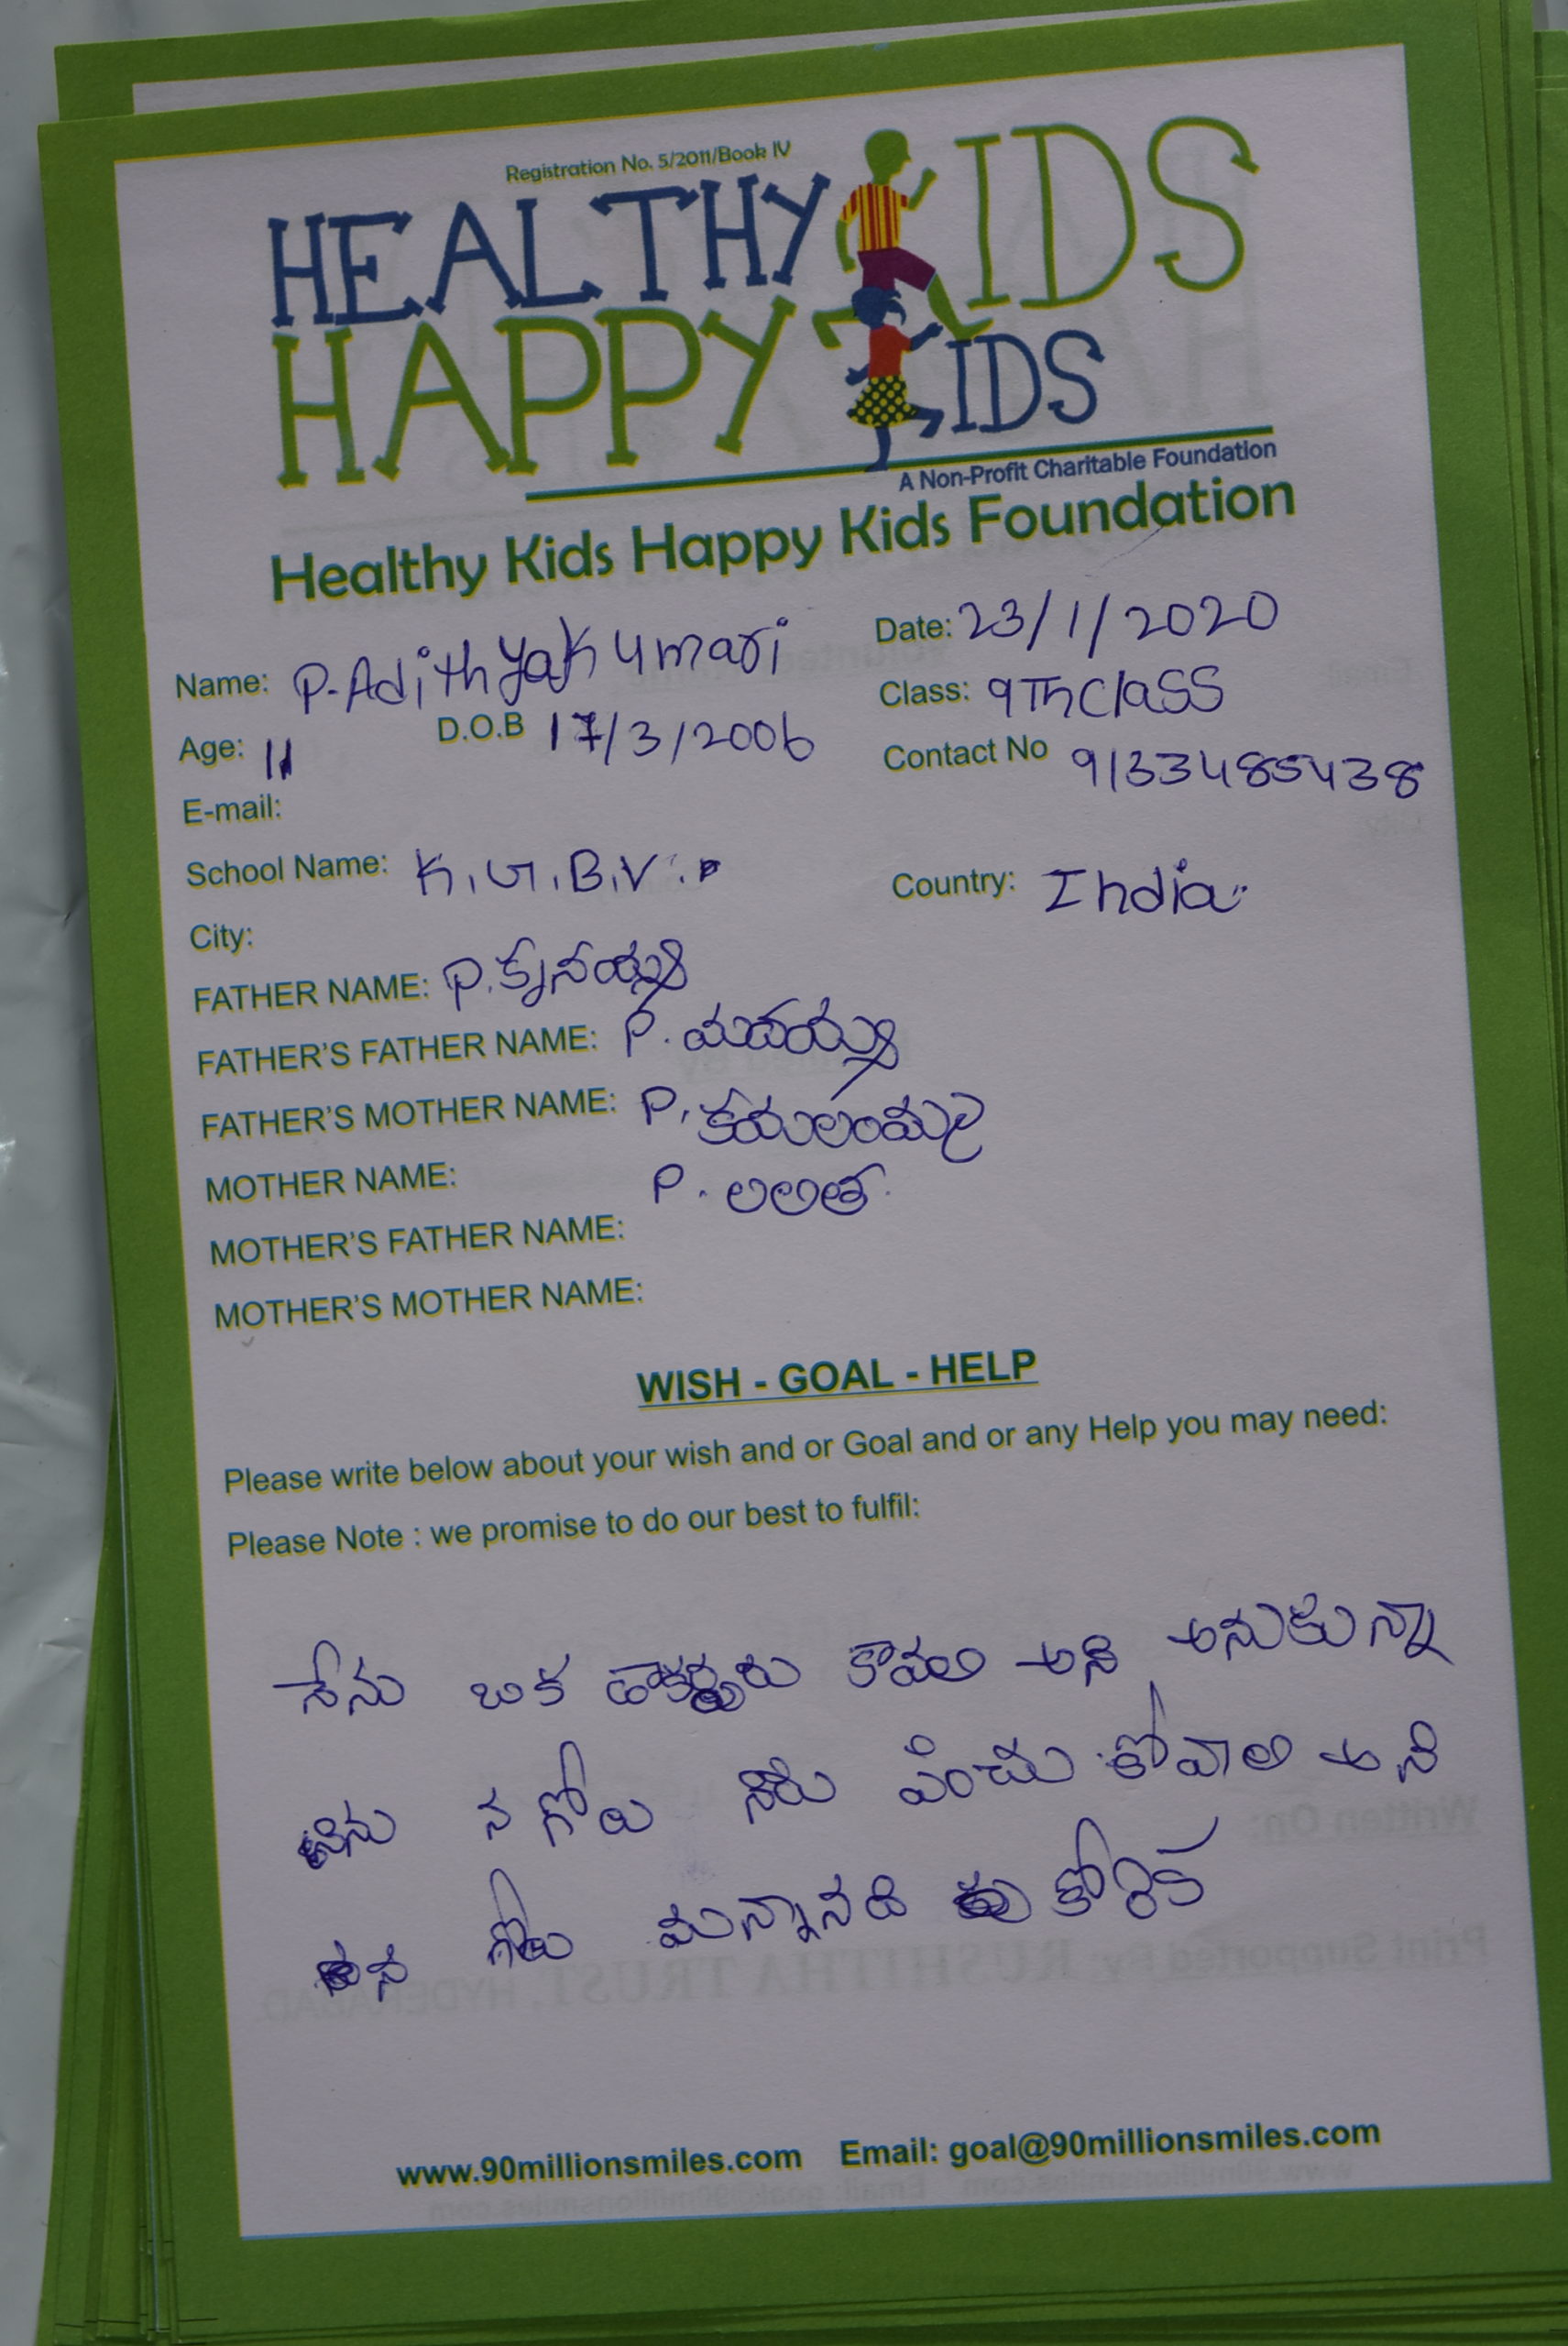 Registration No. 5/2011/Book IV
HEALTHY KIDS
HAPPY KIDS
A Non-Profit Charitable Foundation
Healthy Kids Happy Kids Foundation
Name: P. Adithyakumari Date: 23/1/2020
Class: 9Th class
Age: 11 D.O.B 17/3/2006 Contact No 9133485438
E-mail:
School Name: K.G.B.V. Country: India
City:
FATHER NAME: P.
FATHER'S FATHER NAME: P.
FATHER'S MOTHER NAME: P. కమలంమ్మ
MOTHER NAME: P. లలిత
MOTHER'S FATHER NAME:
MOTHER'S MOTHER NAME:
WISH - GOAL - HELP
Please write below about your wish and or Goal and or any Help you may need:
Please Note : we promise to do our best to fulfil:
నేను ఒక కావలి అని అనుకున్నా
నేను న గోలు పెంచు కోవాలి అని
న గోలు కోరిక
www.90millionsmiles.com Email: goal@90millionsmiles.com